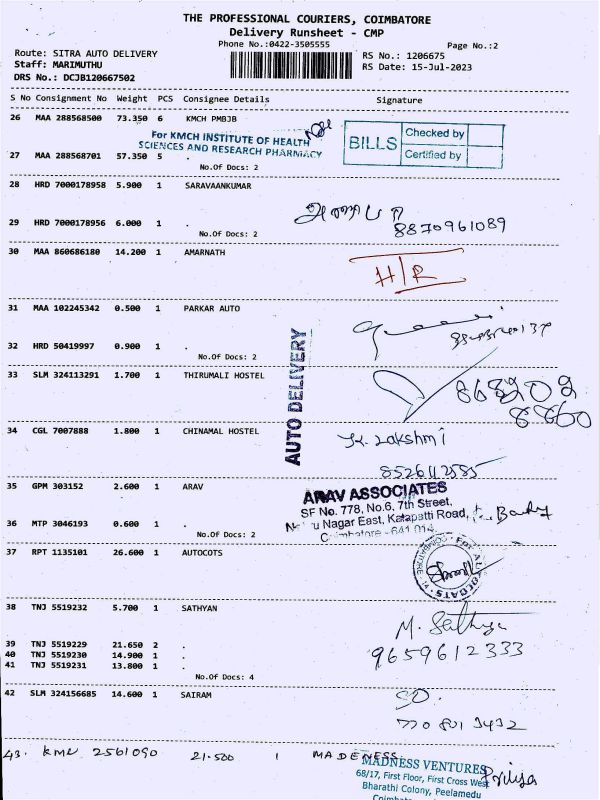 THE PROFESSIONAL COURIERS, COIMBATORE
Delivery Runsheet - CMP
Phone No.:0422-3505555
Page No.:2
Route: SITRA AUTO DELIVERY
RS No.: 1206675
Staff: MARIMUTHU
RS Date: 15-Jul-2023
DRS No.: DCJB120667502
S No Consignment No Weight PCS Consignee Details Signature
26 MAA 288568500 73.350 6 KMCH PMBJB
For KMCH INSTITUTE OF HEALTH
SCIENCES AND RESEARCH PHARMACY
BILLS Checked by
Certified by
27 MAA 288568701 57.350 5 .
No.Of Docs: 2
28 HRD 7000178958 5.900 1 SARAVAANKUMAR
29 HRD 7000178956 6.000 1 .
8870961089
No.Of Docs: 2
30 MAA 860686180 14.200 1 AMARNATH
H/R
31 MAA 102245342 0.500 1 PARKAR AUTO
32 HRD 50419997 0.900 1 .
No.Of Docs: 2
AUTO DELIVERY
33 SLM 324113291 1.700 1 THIRUMALI HOSTEL
34 CGL 7007888 1.800 1 CHINAMAL HOSTEL
K. Lakshmi
8526112585
35 GPM 303152 2.600 1 ARAV
ARAV ASSOCIATES
SF No. 778, No.6, 7th Street,
Nagar East, Kalapatti Road,
36 MTP 3046193 0.600 1 .
Coimbatore - 641 014.
No.Of Docs: 2
37 RPT 1135101 26.600 1 AUTOCOTS
38 TNJ 5519232 5.700 1 SATHYAN
M. Sathya
9659612333
39 TNJ 5519229 21.650 2 .
40 TNJ 5519230 14.900 1 .
41 TNJ 5519231 13.800 1 .
No.Of Docs: 4
42 SLM 324156685 14.600 1 SAIRAM
43. KMU 2561090 21.500 1 MADENESS
MADNESS VENTURES
68/17, First Floor, First Cross West
Priya
Bharathi Colony, Peelamedu